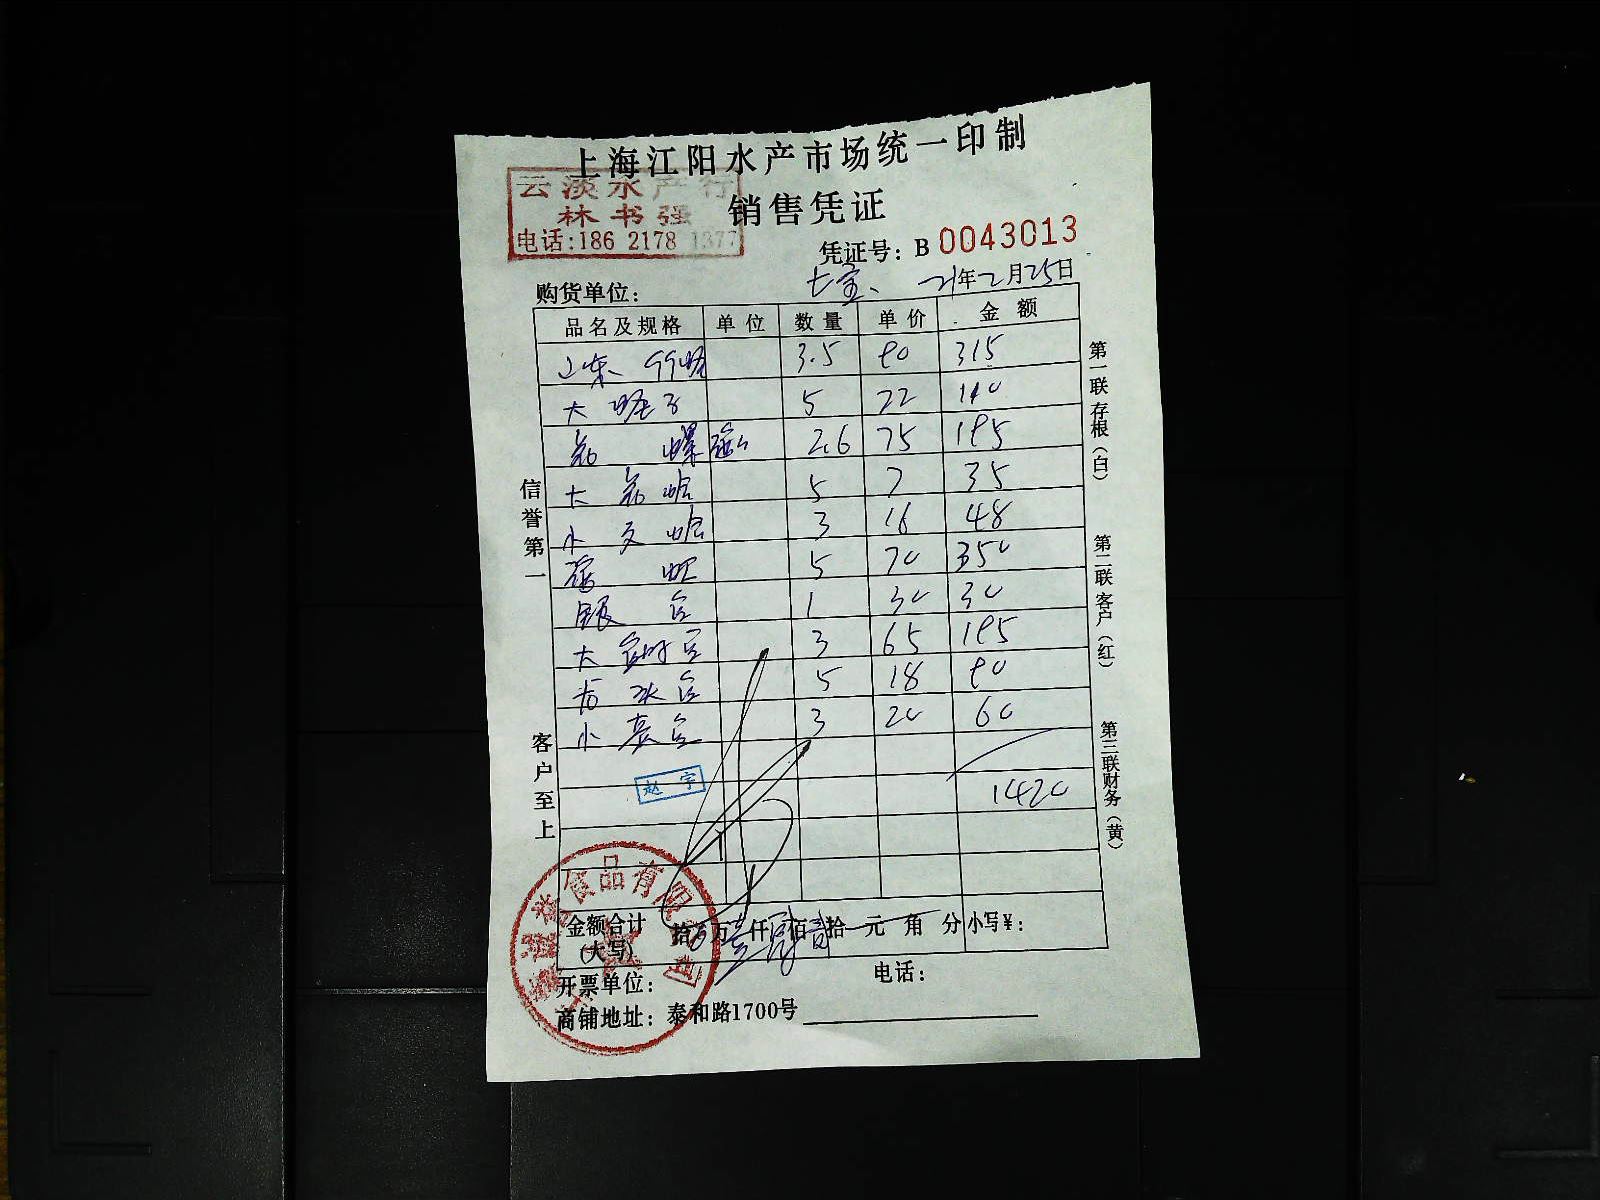 上海江阳水产市场统一印制
云淡水产行
林书强
电话:186 2178 1377
销售凭证
凭证号: B 0043013
购货单位: 七宝、 21年2月25日
品名及规格 单位 数量 单价 金额
山东 99蛏 3.5 90 315
大 蛏子 5 22 110
花 螺 2.6 75 195
大 花蛤 5 7 35
小 文蛤 3 16 48
5 70 350
银 1 30 30
大 3 65 195
5 18 90
小 3 20 60
1420
赵 宇
金额合计 拾 万 仟 佰 拾 元 角 分 小写¥:
(大写)
食品有限
开票单位: 电话:
商铺地址: 泰和路1700号
信誉第一
客户至上
第一联 存根(白)
第二联 客户(红)
第三联 财务(黄)